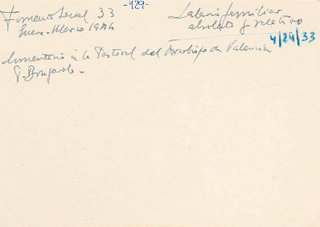 -429-
Fomento Social 33
Enero-Marzo 1954
Salario familiar
absoluto y relativo
4/24/33
Comentario a la Pastoral del Arzobispo de Valencia